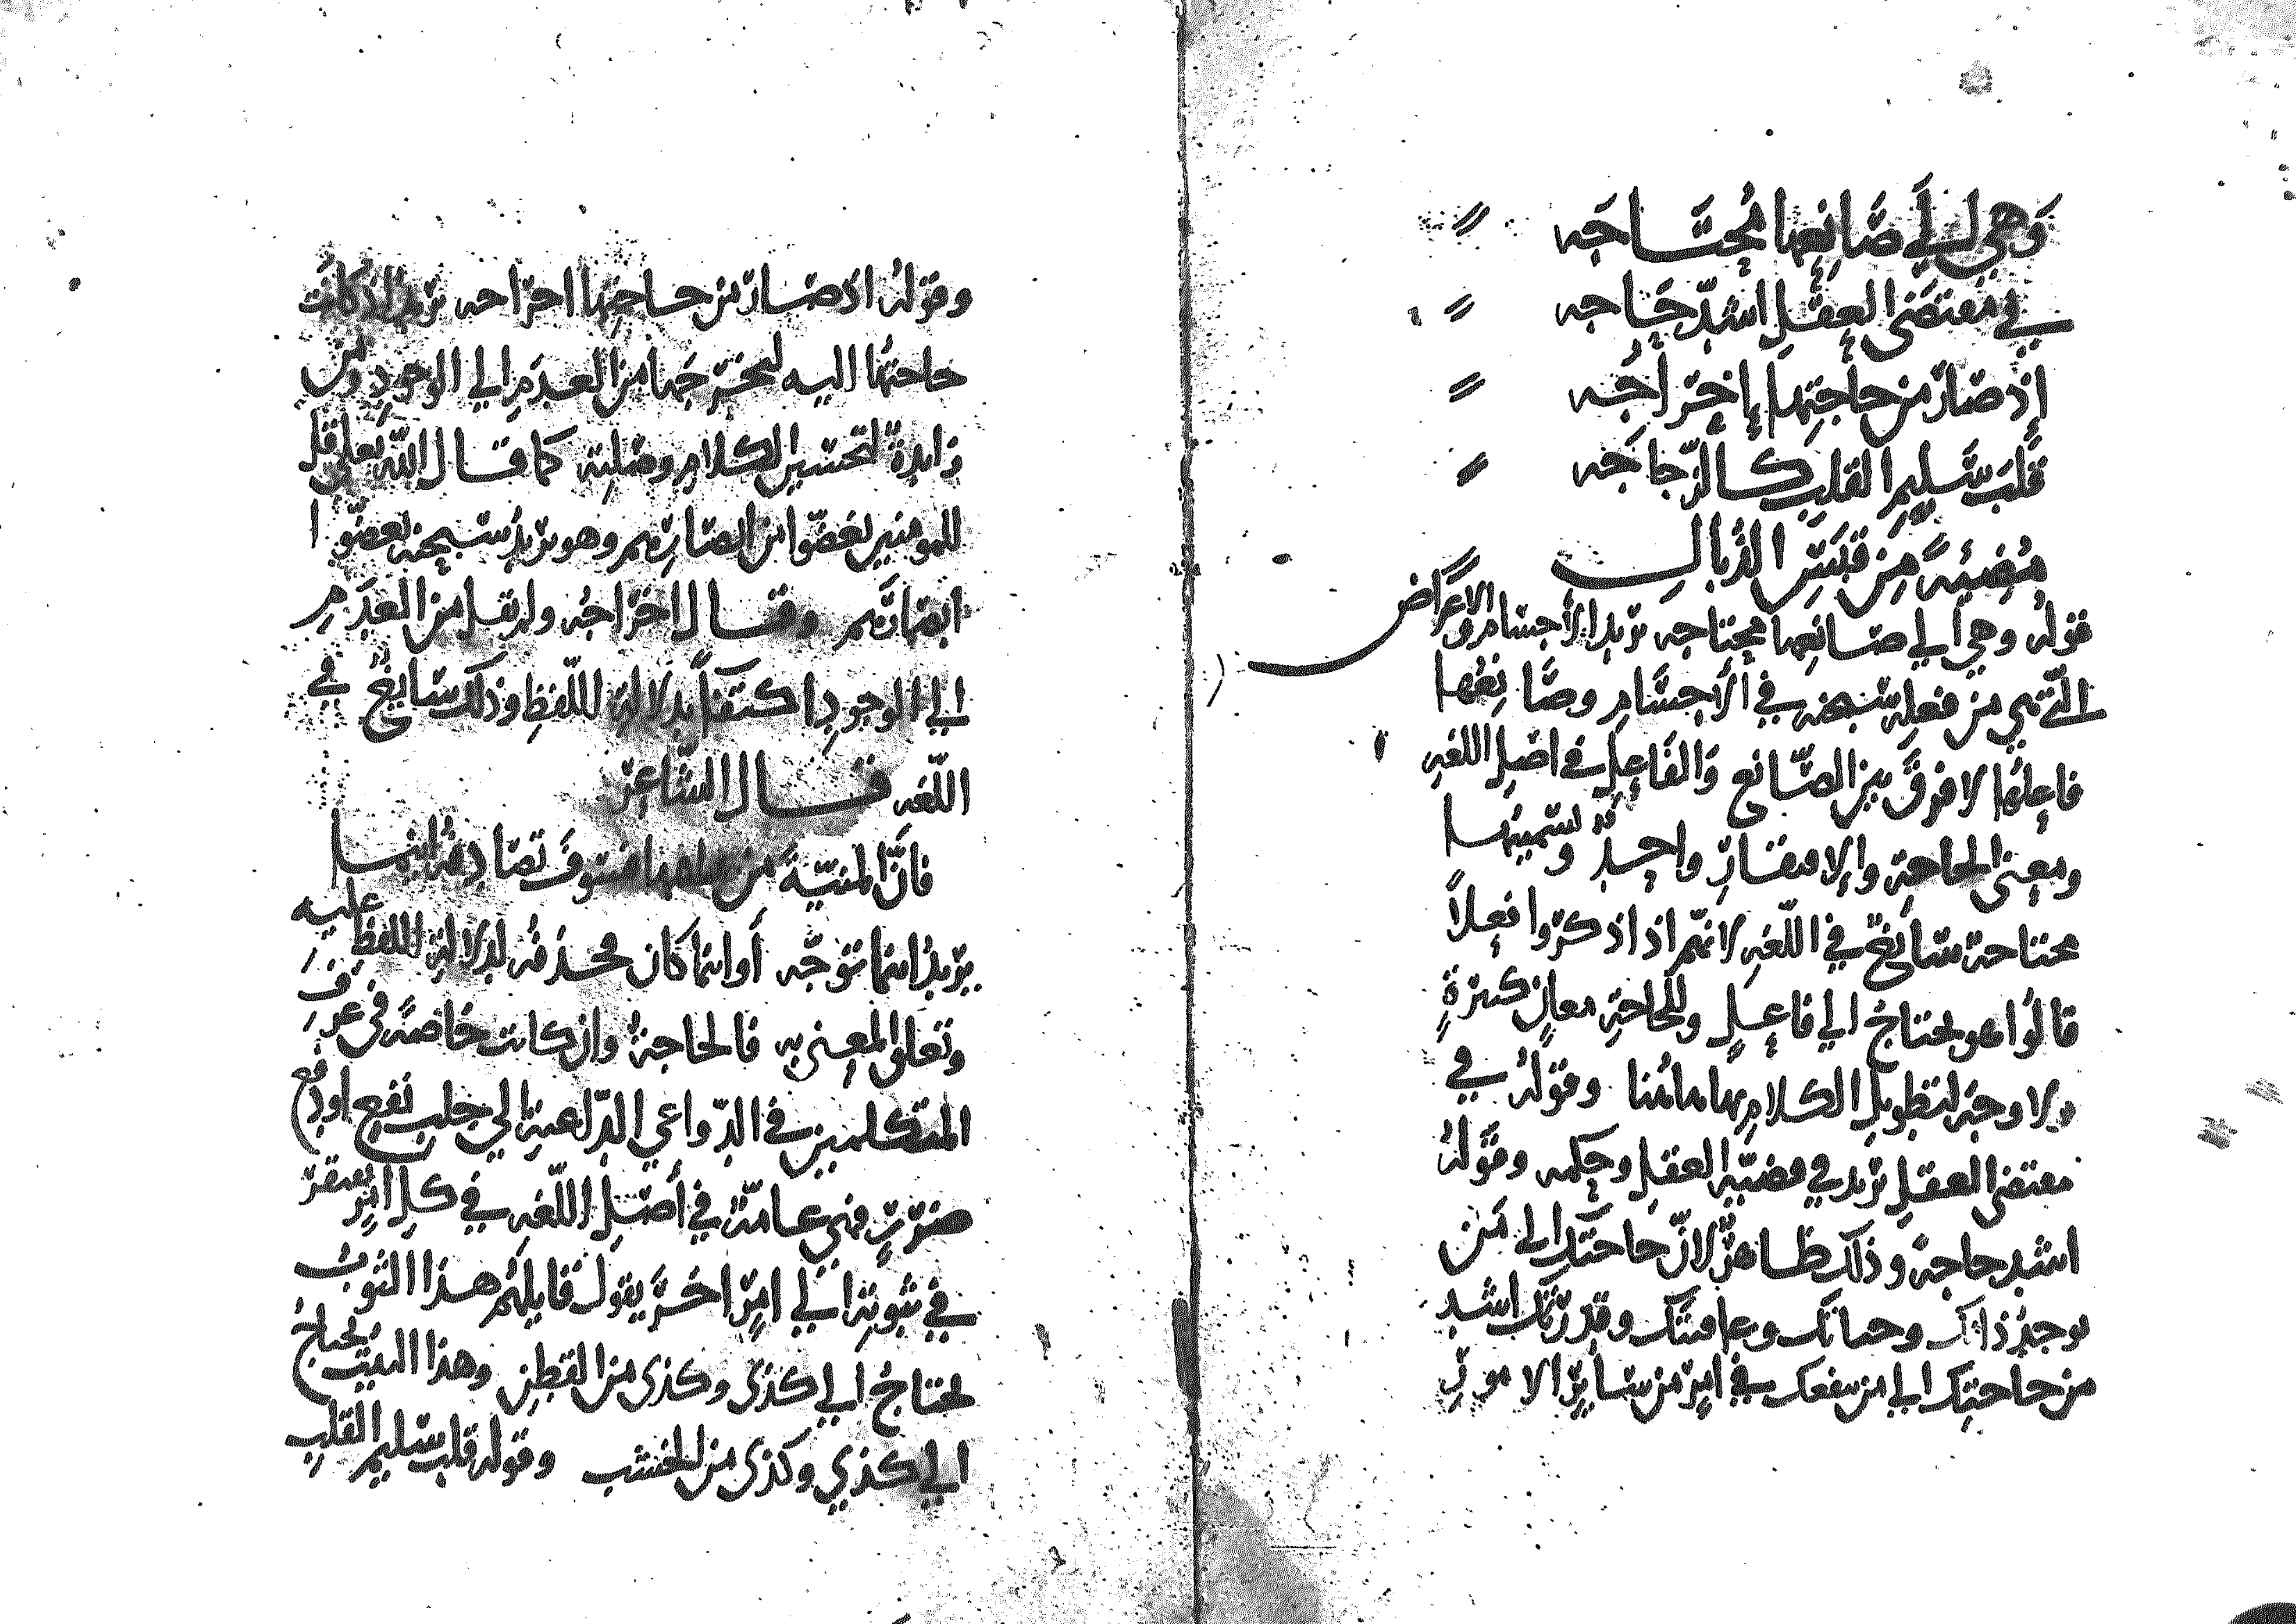 وَهي لى إلى صَانِعِها مُحتَاجَه
في مقتضى العقلِ اشدّ حَاجه
إذ صَارَ من حاجتِها إخرَاجُه
قلبَ سَليمِ القلبِ كالزّجاجَه
مُضيئةً مِن قَبَسِ الذُبالِ
قوله وهي الى صانعها محتاجه يريد الأجسام والاعراض
الّتي هي من فعله سبحنه في الأجسَامِ وصَانِعُها
فاعلُها لا فرقَ بين الصّانع وَالفَاعِلِ في اصلِ اللغهِ
ومعنى الحاجةِ والإفتقارِ واحِدٌ وتسميتُها
محتاجة سَائغٌ في اللّغهِ لانهم اذا ذكروا فِعلاً
قالُوا هو يحتاجُ الى فاعِلٍ وللحاجةِ معانٍ كثيرةٍ
ولا وجهَ لتطويلِ الكلامِ بها هاهُنا وقولُه في
مقتضى العقلِ يريد في قضيّه العقلِ وحكمه وقولُه
اشد حاجة وذلك ظاهرٌ لانّ حاجتَك الى مَن
يوجدُ ذاتك وحياتك وعافيتك وقدرتك اشد
من حاجتِك الى من ينفعك في امرٍ من سَائرِ الامورِ
وقولُه اذ صَارَ من حاجتِها اخراجه يريد اذ كانت
حاجتُها اليه ليُخرجَها من العدَمِ الى الوجودِ ومن
زايدةٌ لتحسين الكلامِ وصلته كما قال اللّه تعالى قل
للمومنين يغضّوا من ابصارِهم وهو يريد سبحنه يغضّوا
ابصَارَهم وقال اخراجُه ولم يقل من العدَمِ
الى الوجودِ اكتفاً بدلالةِ اللّفظِ وذلك سَايغٌ في
اللّغه قال الشّاعِر
فانَّ المنيّةَ من يلقها فسَوفَ تصَادِفهُ اينما
يريدُ اينما توجّه أو اينما كان فحذفه لدلالةِ اللفظِ عليه
وتعلق المعنى به فالحاجةُ وان كانت خاصةً في عرفِ
المتكلمين في الدّواعي الدّاعيةِ الى جلبِ نفعٍ او دفعِ
ضررٍ فهي عامّةٌ في أصلِ اللّغهِ في كلِ امرٍ يفتقر
في ثبوته الى امرٍ اخرَ يقول قايلهُم هذا الثوبُ
يحتاجُ الى كذى وكذى من القطنِ وهذا البيت يحتاجُ
الى كذي وكذى من الخشب وقوله قلب سليم القلبِ